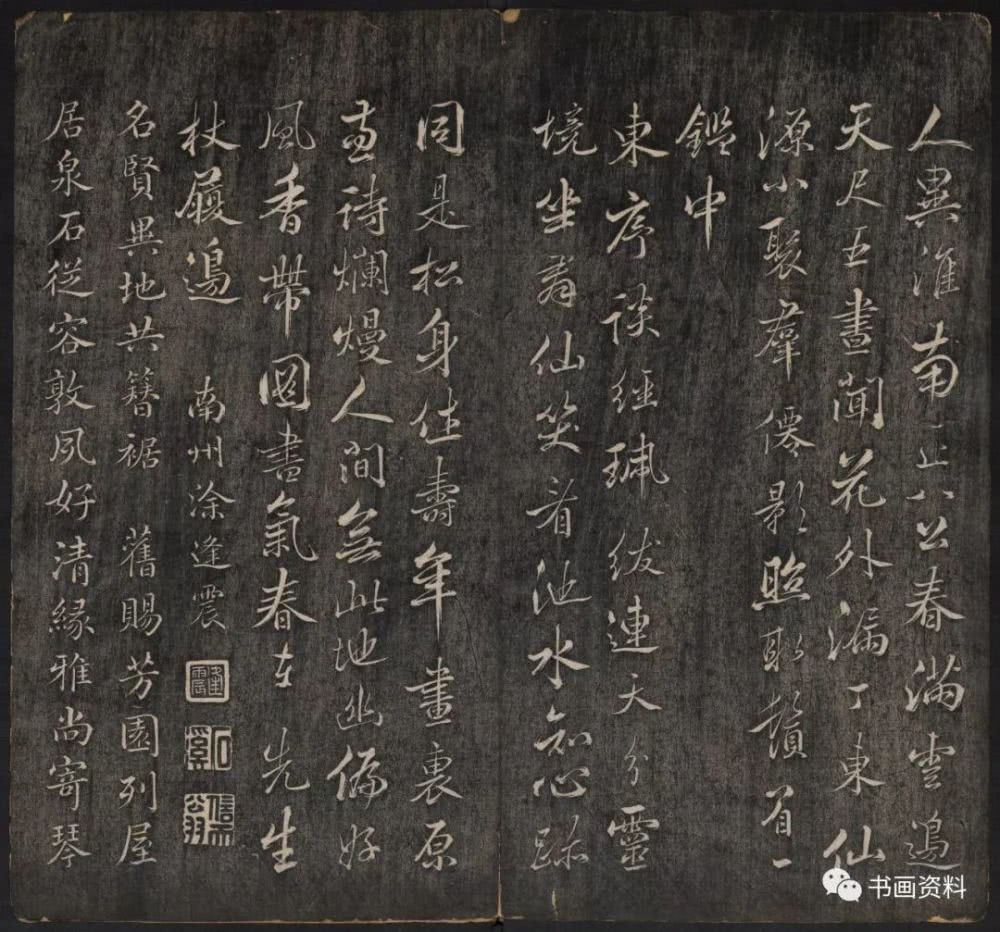 人異淮南正八公春滿雲邊
天尺五晝聞花外漏丁東仙
源小聚羣僊影照耿鬚眉一
鑑中
東序談經珮紱連天分靈
境坐羣仙笑看池水知心跡
同是松身住壽年畫裏原
兼詩爛熳人間無此地幽偏好
風香帶圖書氣春在先生
杖履邊 南州涂逢震
逢震
石溪
信天翁
名賢異地共簪裾 舊賜芳園列屋
居泉石從容敦夙好清緣雅尚寄琴
书画资料